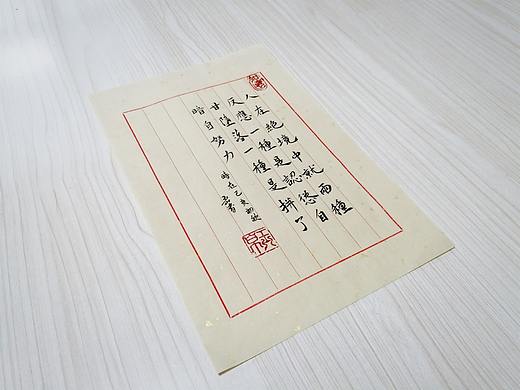 人在絕境中就兩種
反應一種是認慫自
甘墮落一種是拼了
暗自努力
時在己亥初秋